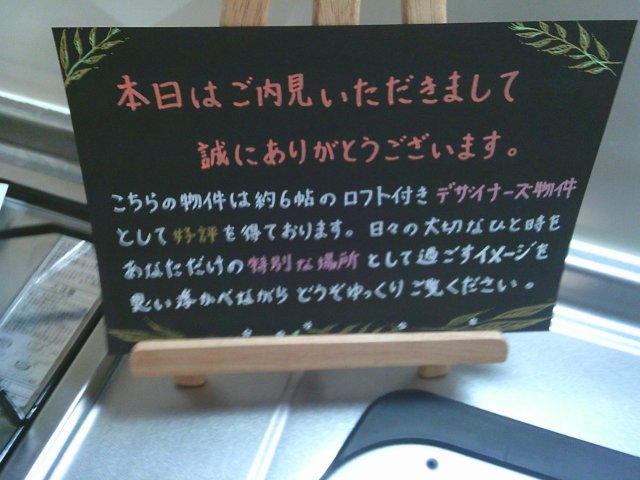 本日はご内見いただきまして
誠にありがとうございます。
こちらの物件は約6帖のロフト付きデザイナーズ物件
として好評を得ております。日々の大切なひと時を
あなただけの特別な場所として過ごすイメージを
思い浮かべながらどうぞゆっくりご覧ください。